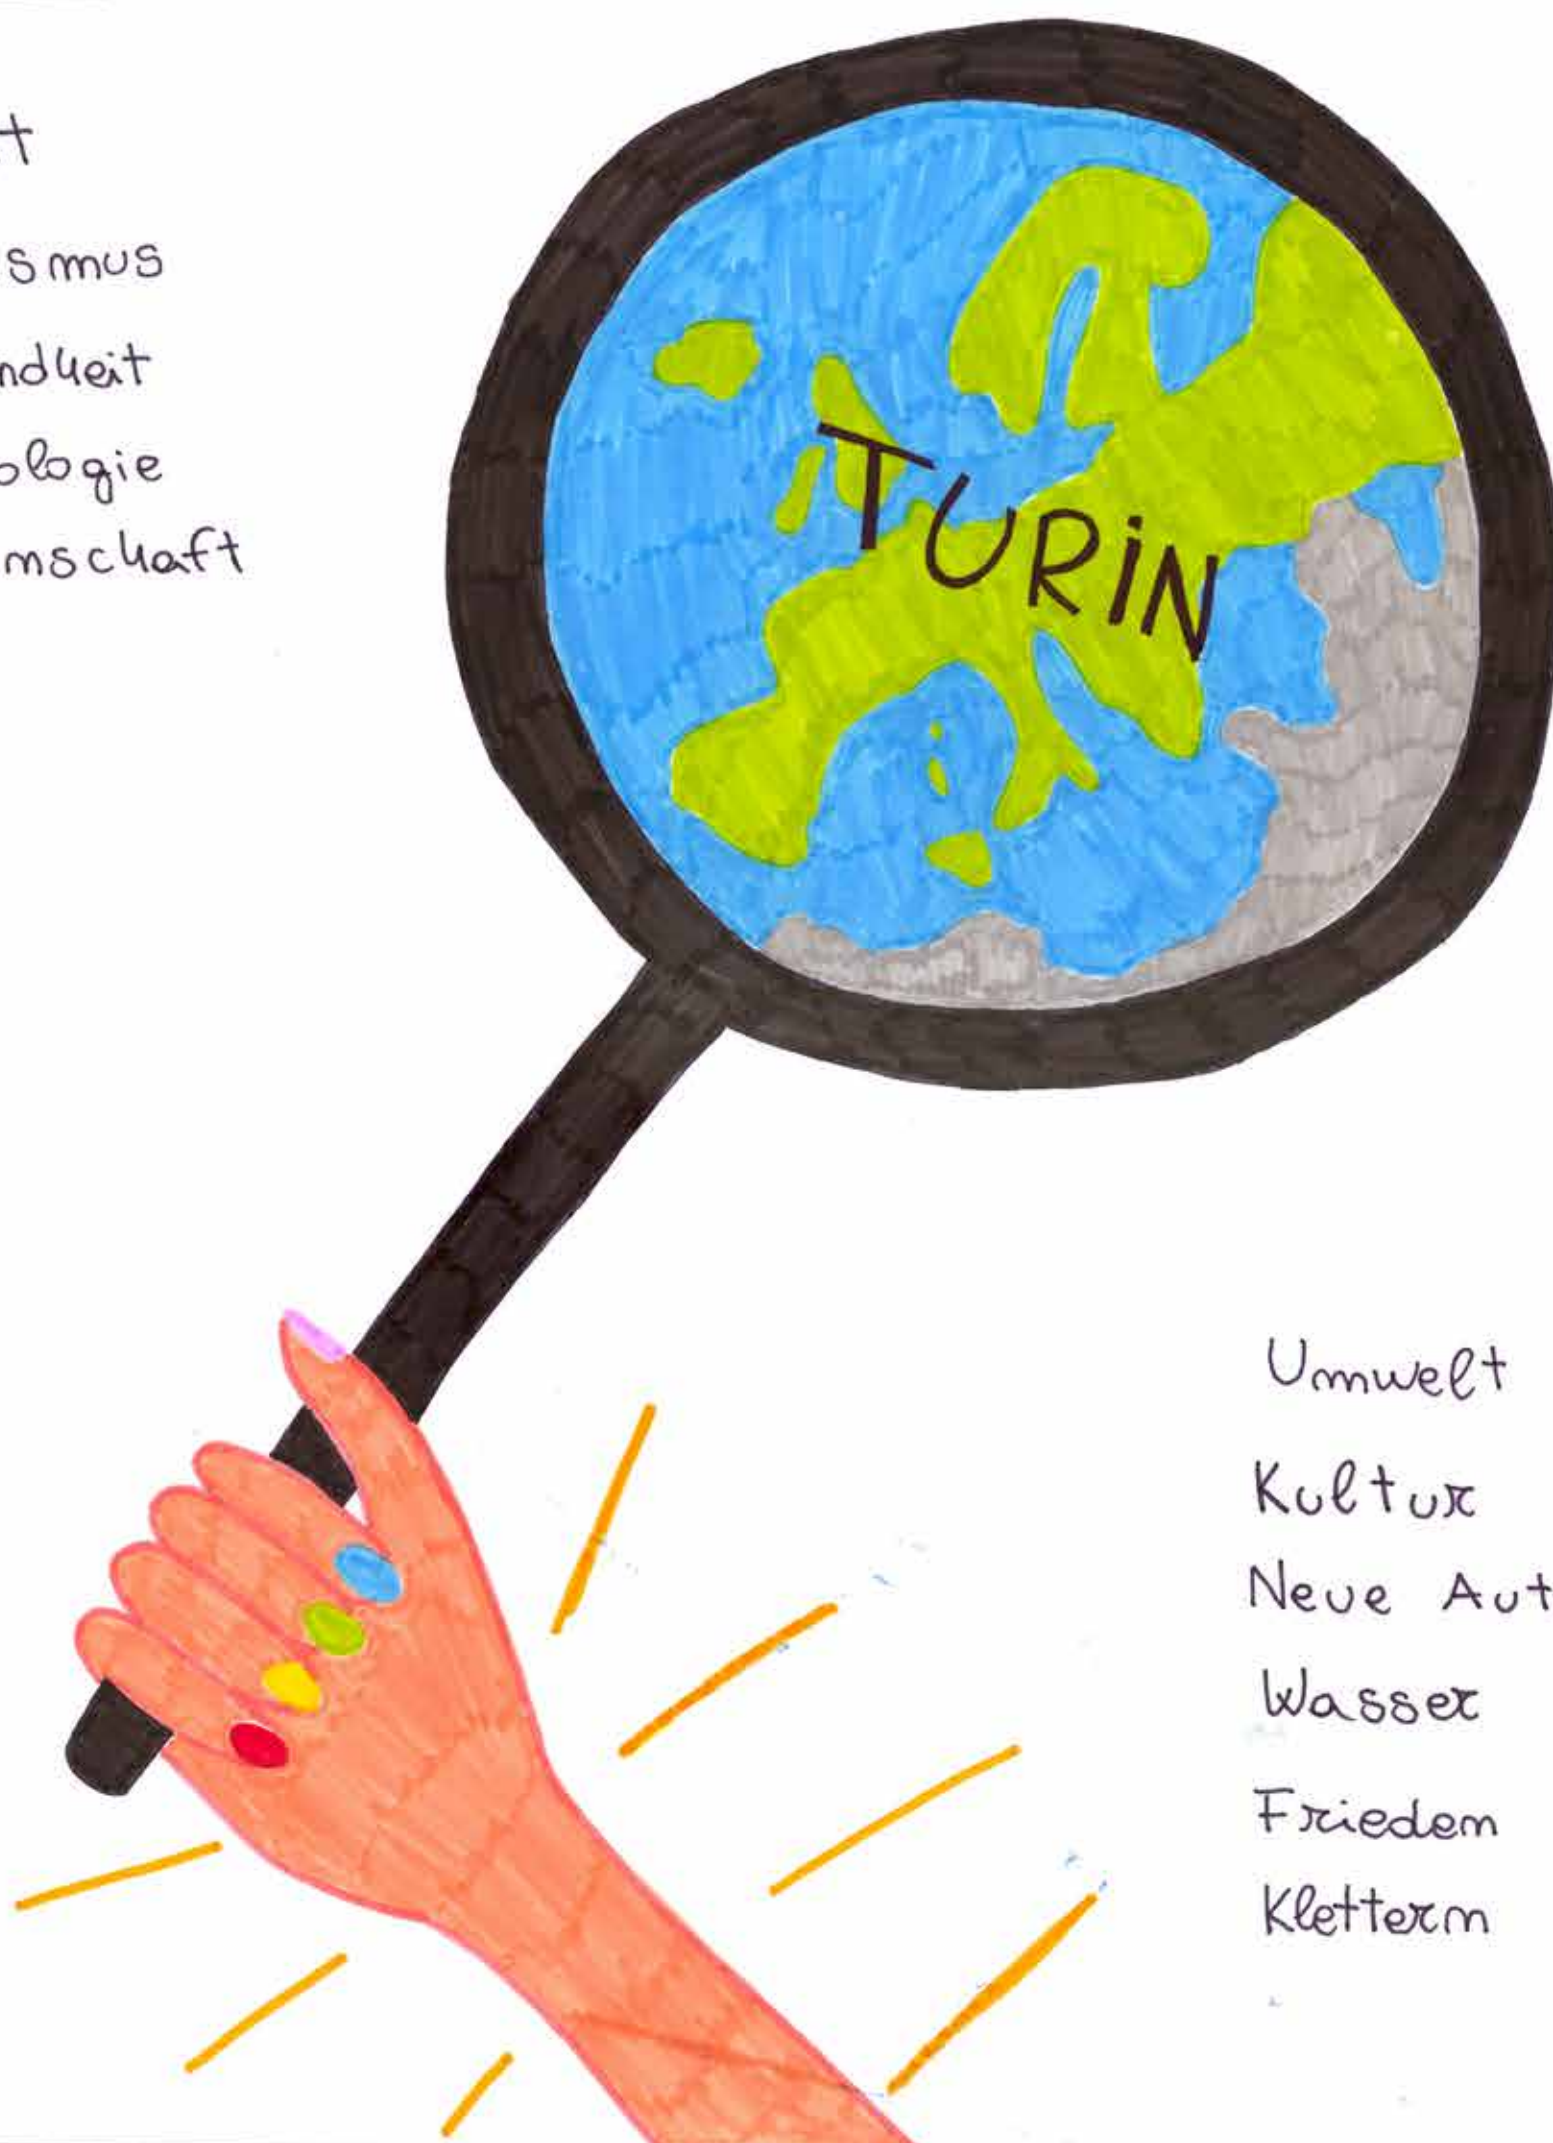 t
smus
ndheit
ologie
nschaft
TURIN
Umwelt
Kultur
Neue Aut
Wasser
Frieden
Klettern